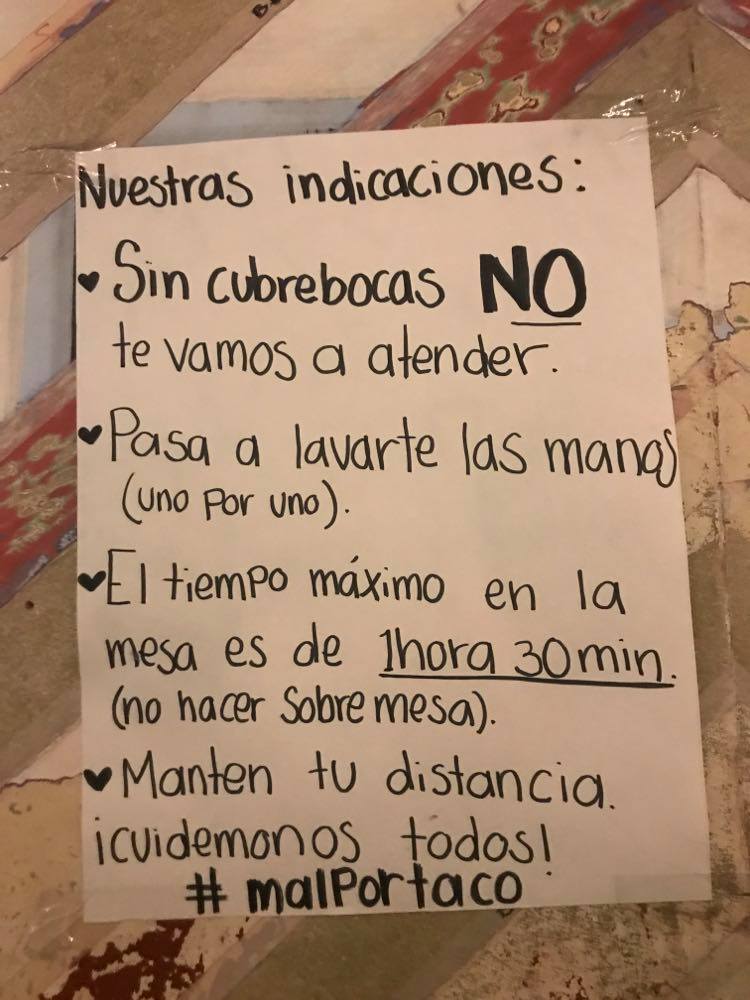 Nuestras indicaciones:
♥ Sin cubrebocas NO
te vamos a atender.
♥ Pasa a lavarte las manos
(uno por uno).
♥ El tiempo máximo en la
mesa es de 1hora 30min.
(no hacer sobre mesa).
♥ Manten tu distancia.
¡cuidemonos todos!
# malPortaco